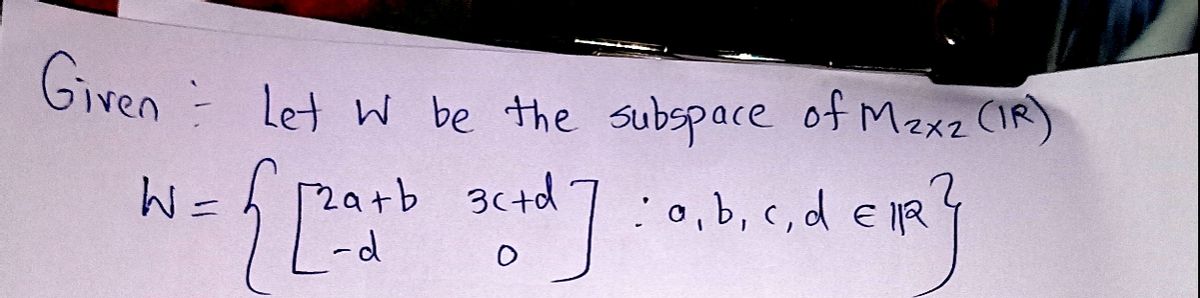 Given :- Let W be the subspace of M₂ₓ₂ (ℝ)
W = { [ 2a+b 3c+d ] : a, b, c, d ∈ ℝ }
-d 0